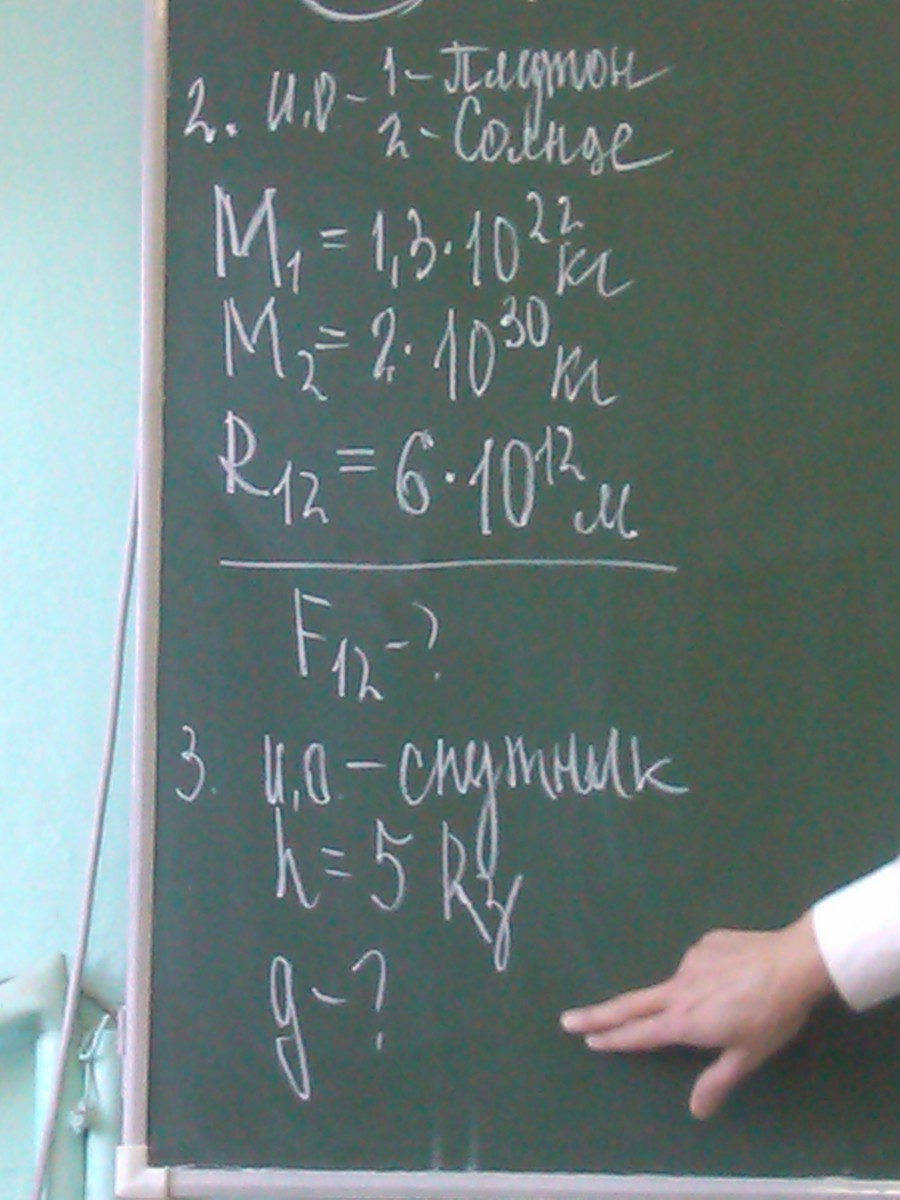 2. И.О - 1 - Плутон
2 - Солнце
M₁ = 1,3 · 10²² кг
M₂ = 2 · 10³⁰ кг
R₁₂ = 6 · 10¹² м
F₁₂ - ?
3. И.О - спутник
h = 5 Rз
g - ?